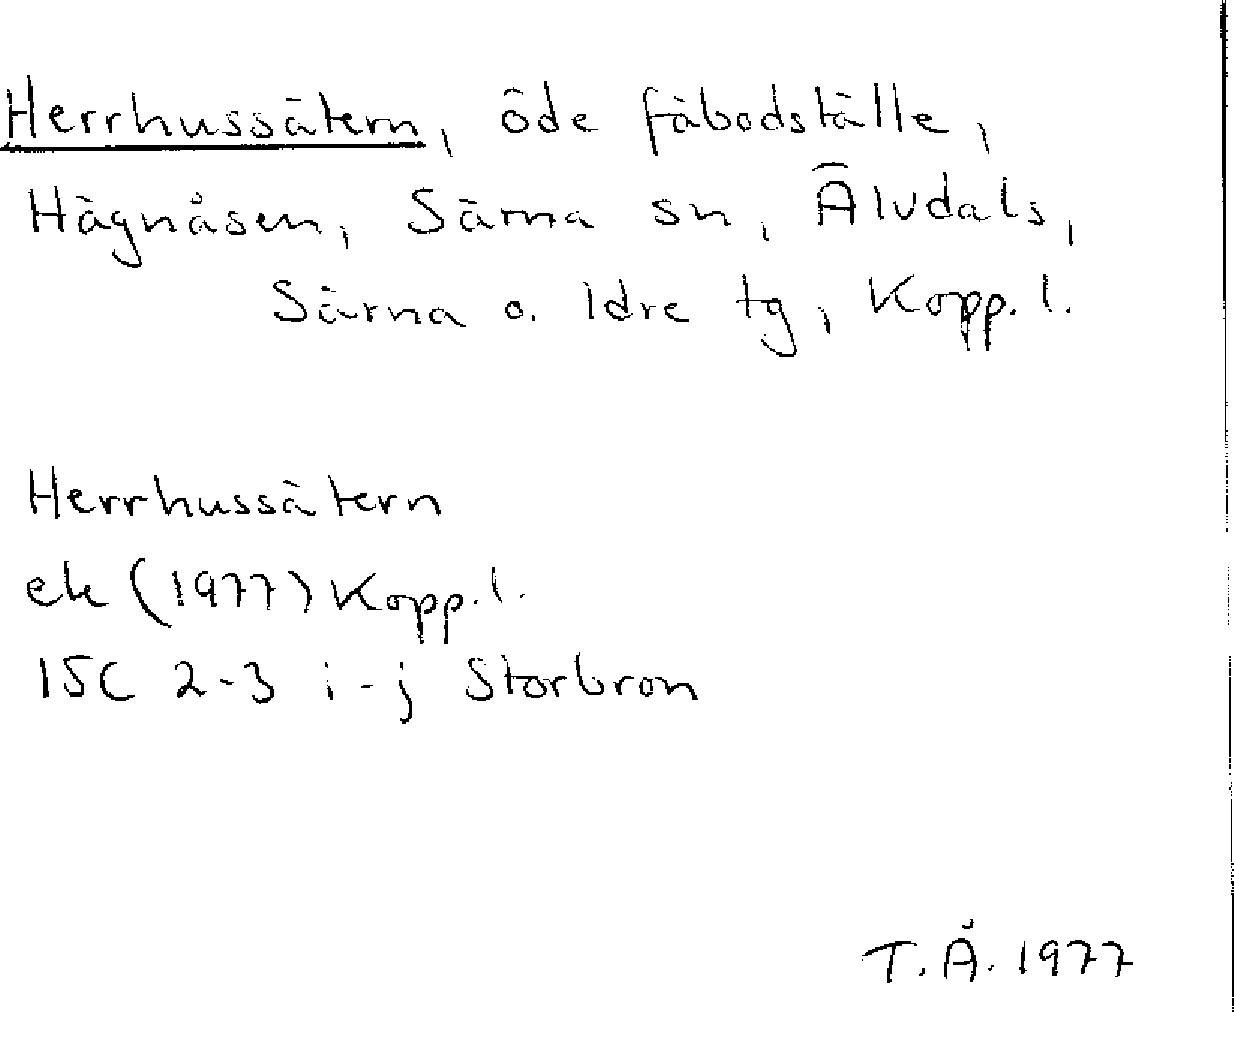 Herrhussätern, öde fäbodställe,
Hägnåsen, Särna sn, Älvdals,
Särna o. Idre tg, Kopp. l.
Herrhussätern
ek (1977) Kopp. l.
15C 2-3 i-j Storbron
T.Å. 1977